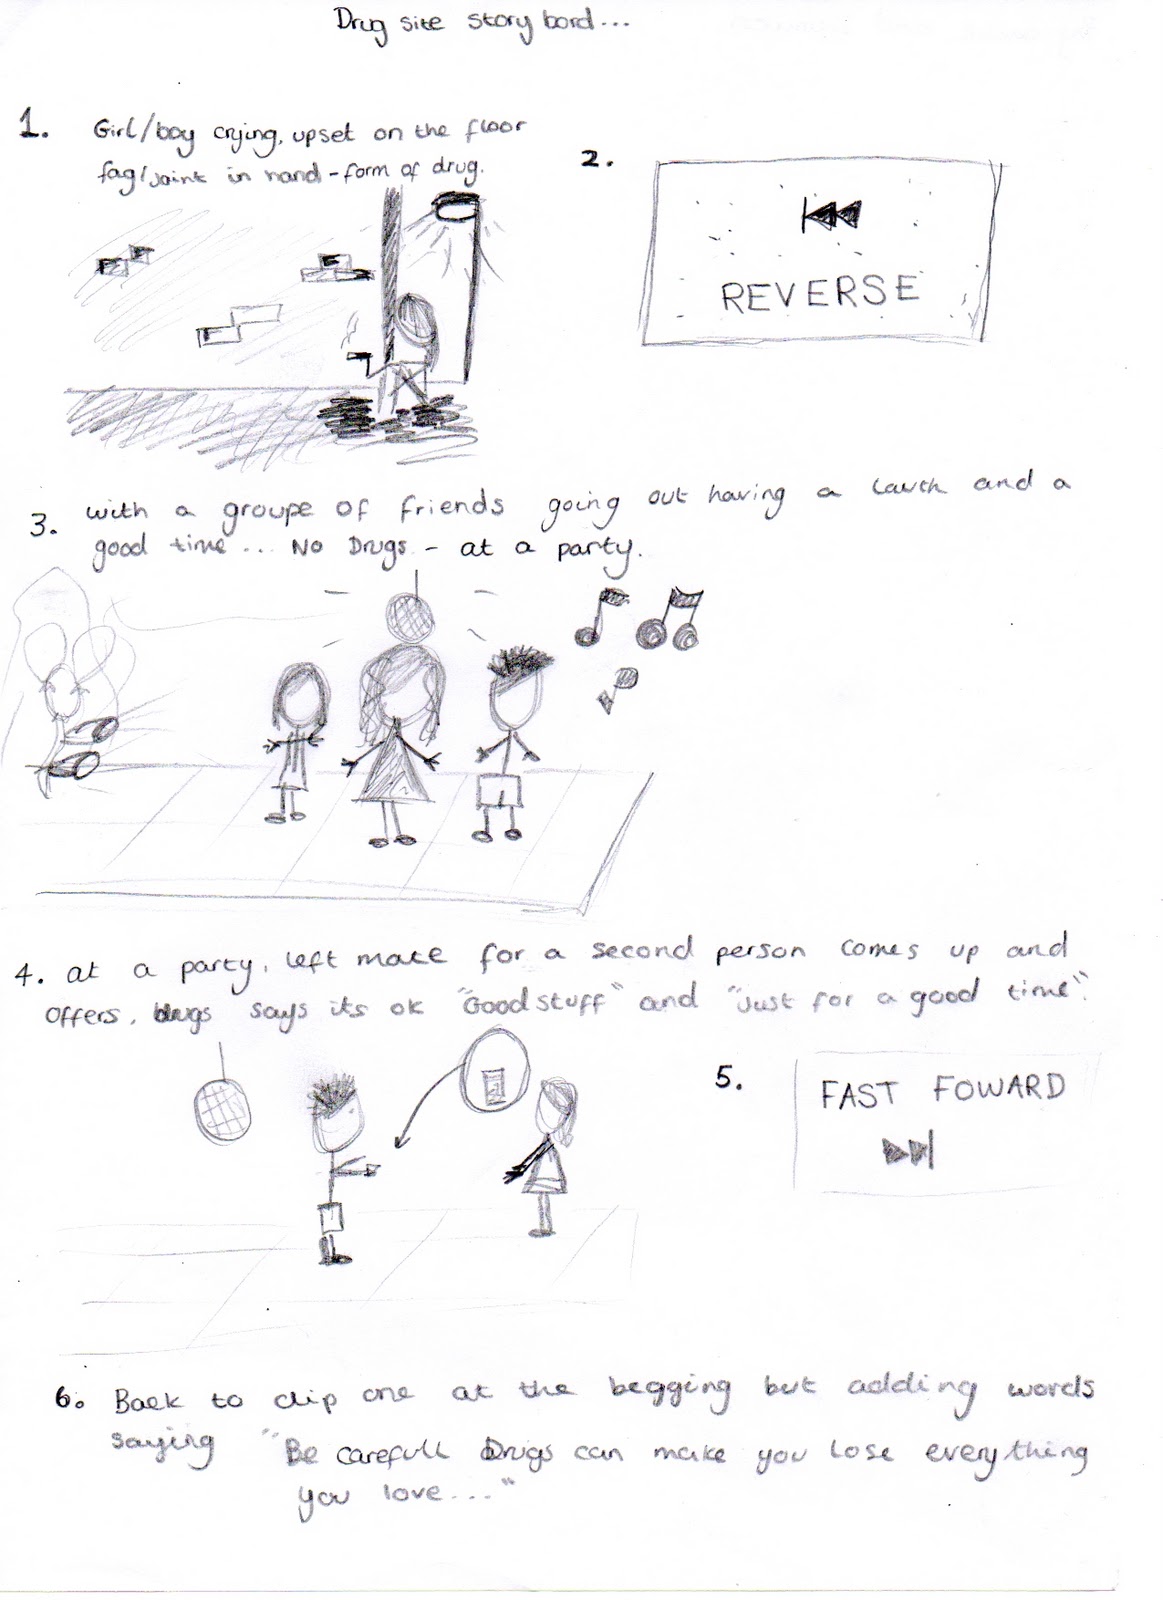 Drug site story bord...
1. Girl/boy crying, upset on the floor
fag/joint in hand - form of drug.
2.
REVERSE
3. with a groupe of friends going out having a lauch and a
good time... No Drugs - at a party.
4. at a party, left mate for a second person comes up and
offers, drugs says its ok "Good stuff" and "Just for a good time".
5.
FAST FOWARD
6. Back to clip one at the begging but adding words
saying "Be carefull Drugs can make you lose everything
you love...."